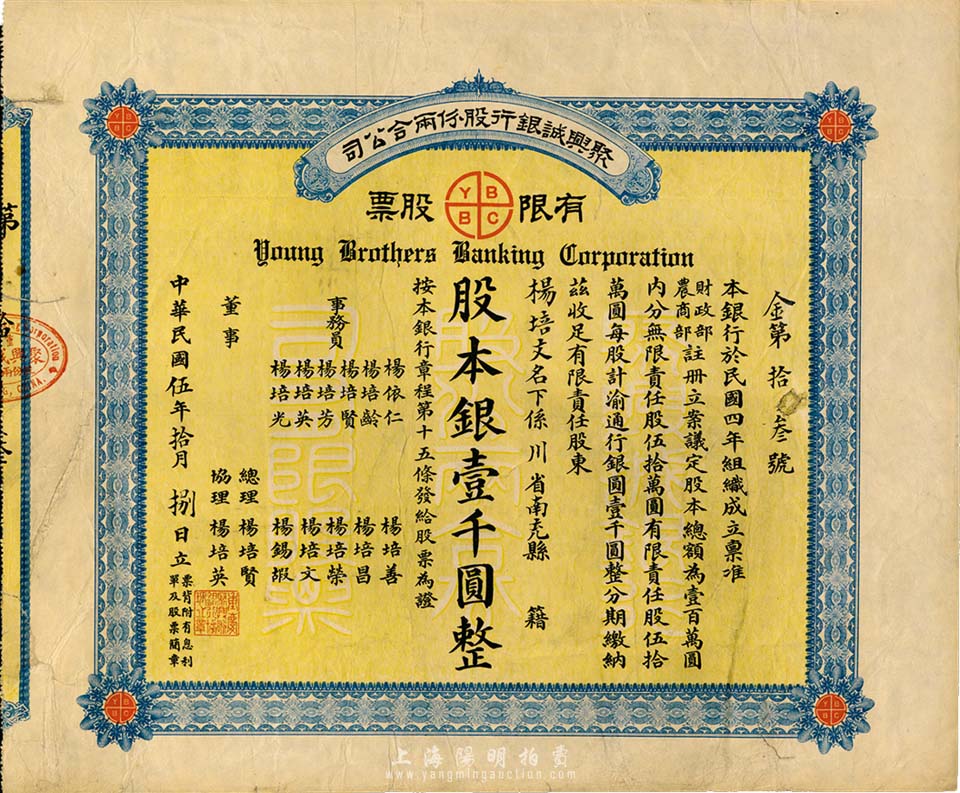 聚興誠銀行股份兩合公司
有限 股票
YB
BC
Young Brothers Banking Corporation
金第拾叁號
本銀行於民國四年組織成立稟准
財政部
農商部 註册立案議定股本總額為壹百萬圓
內分無限責任股伍拾萬圓有限責任股伍拾
萬圓每股計渝通行銀圓壹千圓整分期繳納
茲收足有限責任股東
楊培文名下係川省南充縣 籍
股本銀壹千圓整
按本銀行章程第十五條發給股票為證
事務員
楊依仁 楊培善
楊培齡 楊培昌
楊培賢 楊培榮
楊培芳 楊培文
楊培英 楊錫嘏
楊培光
董事
總理 楊培賢
協理 楊培英
中華民國伍年拾月捌日立
票背附有息利
單及股票簡章
YB
BC
YB
BC
YB
BC
YB
BC
第
上海陽明拍賣
www.yangmingauction.com